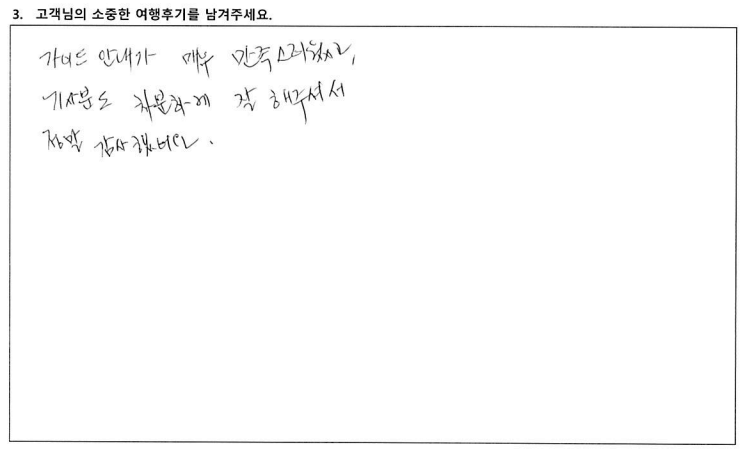 3. 고객님의 소중한 여행후기를 남겨주세요.
가이드 안내가 매우 만족스러웠고,
기사분도 차분하게 잘 해주셔서
정말 감사했어요.